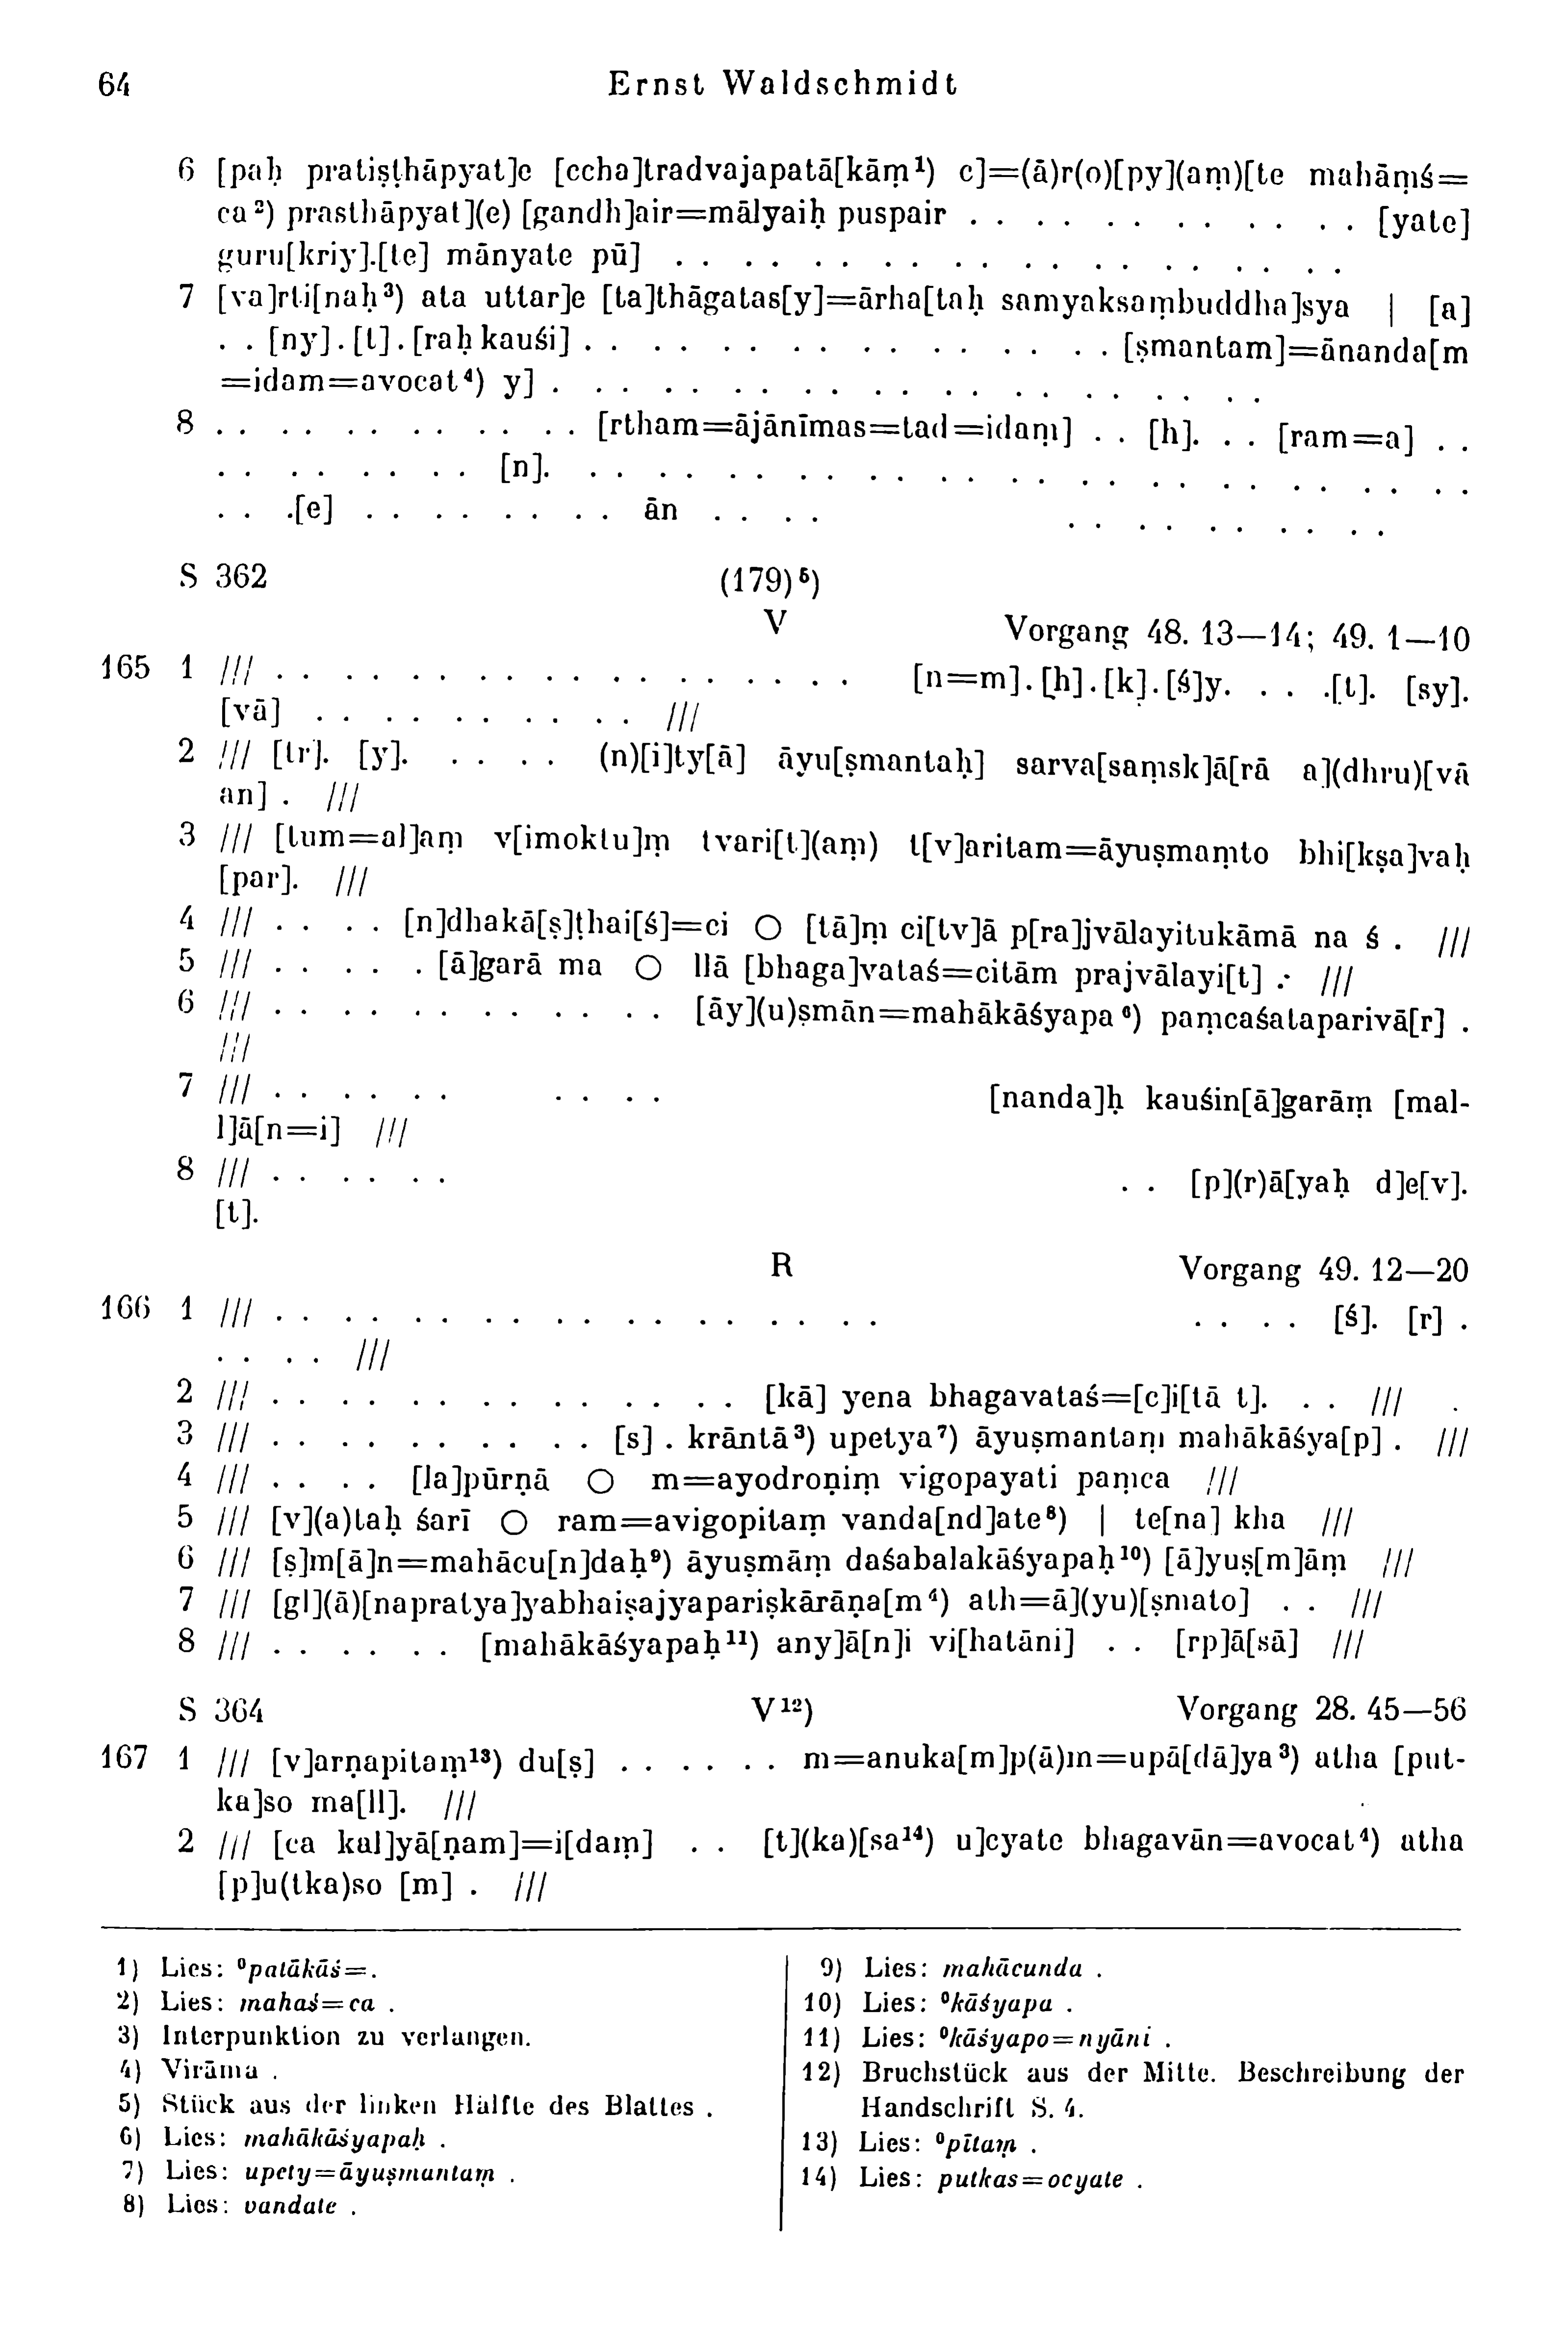 64 Ernst Waldschmidt
6 [paḥ pratiṣṭhāpyat]e [ccha]tradvajapatā[kāṃ¹) c]=(ā)r(o)[py](aṃ)[te mahāṃś=
ca²) prasthāpyat](e) [gandh]air=mālyaiḥ puspair . . . . . . . . . . . . [yate]
guru[kriy].[te] mānyate pū] . . . . . . . . . . . . . . . . . . .
7 [va]rti[naḥ³) ata uttar]e [ta]thāgatas[y]=ārha[taḥ samyaksaṃbuddha]sya | [a]
. . [ny] . [t] . [raḥ kauśi] . . . . . . . . . . . . . . . . [ṣmantam]=ānanda[m
=idam=avocat⁴) y] . . . . . . . . . . . . . . . . . . . . .
8 . . . . . . . . . . . [rtham=ājānīmas=tad=idaṃ] . . [h]. . . [ram=a] . .
. . . . . . . . [n]. . . . . . . . . . . . . . . . . . . . . . . . . . .
. . .[e] . . . . . . . . ān . . . . . . . . . . . . . .
S 362 (179)⁵)
V Vorgang 48. 13—14; 49. 1—10
165 1 /// . . . . . . . . . . . . . . . . . [n=m] . [h] . [k] . [ś]y. . . .[t]. [sy].
[vā] . . . . . . . . . . ///
2 /// [tr]. [y]. . . . . (n)[i]ty[ā] āyu[ṣmantaḥ] sarva[saṃsk]ā[rā a](dhru)[vā
an] . ///
3 /// [tum=al]aṃ v[imoktu]ṃ tvari[t](aṃ) t[v]aritam=āyuṣmaṃto bhi[kṣa]vaḥ
[par]. ///
4 /// . . . . [n]dhakā[ṣ]ṭhai[ś]=ci ○ [tā]ṃ ci[tv]ā p[ra]jvālayitukāmā na ś . ///
5 /// . . . . . [ā]garā ma ○ llā [bhaga]vataś=citām prajvālayi[t] .· ///
6 /// . . . . . . . . . . . . [āy](u)ṣmān=mahākāśyapa⁶) paṃcaśataparivā[r] .
///
7 /// . . . . . . . . . . [nanda]ḥ kauśin[ā]garāṃ [mal-
l]ā[n=i] ///
8 /// . . . . . . . . [p](r)ā[yaḥ d]e[v].
[t].
R Vorgang 49. 12—20
166 1 /// . . . . . . . . . . . . . . . . . . . . . . [ś]. [r] .
. . . . ///
2 /// . . . . . . . . . . . . . . [kā] yena bhagavataś=[c]i[tā t]. . . ///
3 /// . . . . . . . . . . [s] . krāntā³) upetya⁷) āyuṣmantaṃ mahākāśya[p] . ///
4 /// . . . . [la]pūrṇā ○ m=ayodroṇiṃ vigopayati paṃca ///
5 /// [v](a)taḥ śarī ○ ram=avigopitaṃ vanda[nd]ate⁸) | te[na] kha ///
6 /// [ṣ]m[ā]n=mahācu[n]daḥ⁹) āyuṣmāṃ daśabalakāśyapaḥ¹⁰) [ā]yuṣ[m]āṃ ///
7 /// [gl](ā)[napratya]yabhaiṣajyapariṣkārāṇa[m⁴) ath=ā](yu)[ṣmato] . . ///
8 /// . . . . . . [mahākāśyapaḥ¹¹) any]ā[n]i vi[hatāni] . . [rp]ā[sā] ///
S 364 V¹²) Vorgang 28. 45—56
167 1 /// [v]arṇapitaṃ¹³) du[ṣ] . . . . . . m=anuka[m]p(ā)m=upā[dā]ya³) atha [put-
ka]so ma[ll]. ///
2 /// [ca kal]yā[ṇam]=i[daṃ] . . [t](ka)[sa¹⁴) u]cyate bhagavān=avocat⁴) atha
[p]u(tka)so [m] . ///
1) Lies: ⁰patākāś=.
2) Lies: mahaś=ca .
3) Interpunktion zu verlangen.
4) Virāma .
5) Stück aus der linken Hälfte des Blattes .
6) Lies: mahākāśyapaḥ .
7) Lies: upety=āyuṣmantaṃ .
8) Lies: vandate .
9) Lies: mahācunda .
10) Lies: ⁰kāśyapa .
11) Lies: ⁰kāśyapo=nyāni .
12) Bruchstück aus der Mitte. Beschreibung der
Handschrift S. 4.
13) Lies: ⁰pītaṃ .
14) Lies: putkas=ocyate .